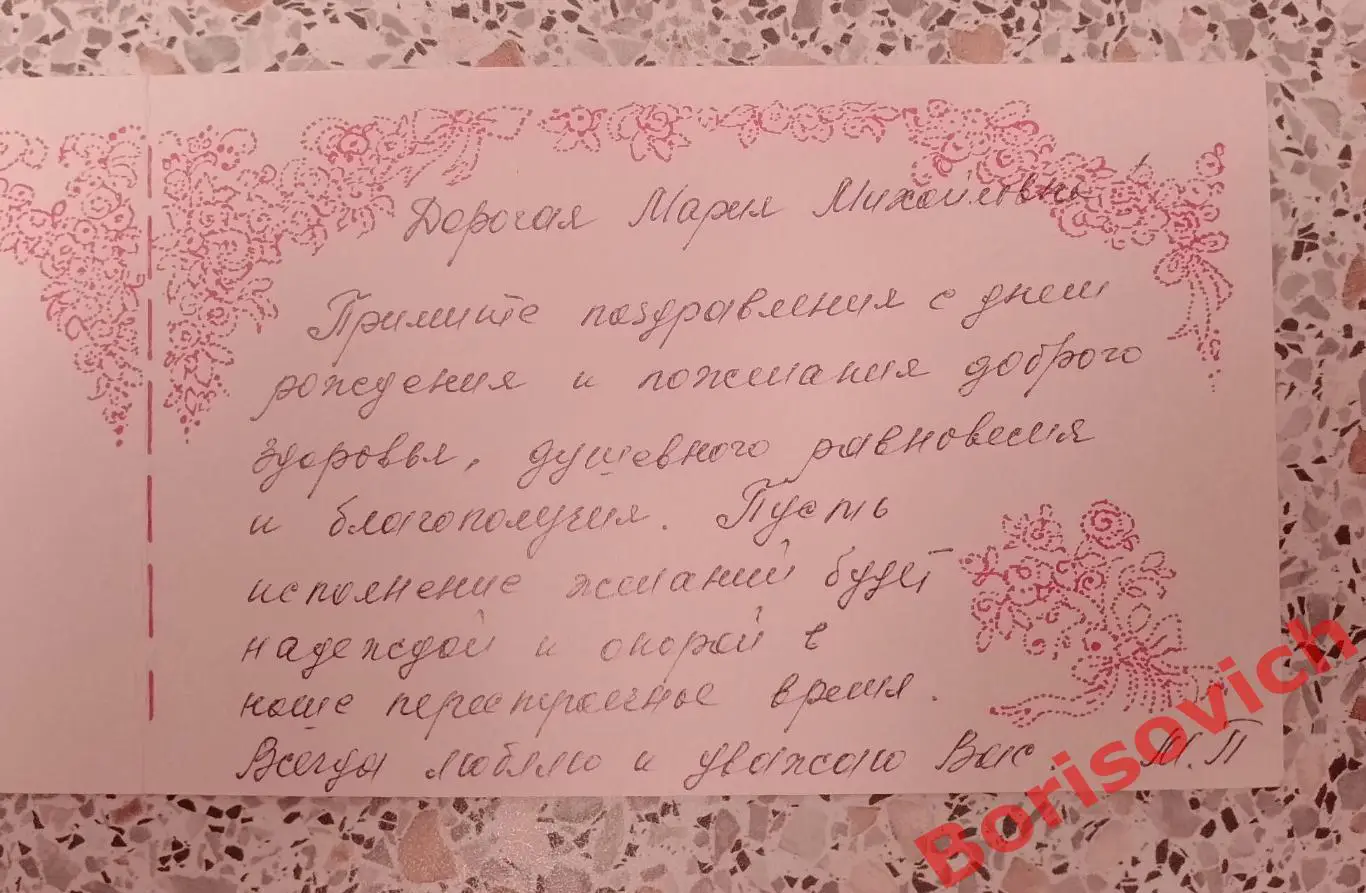 Дорогая Мария Михайловна!
Примите поздравления с днем
рождения и пожелания доброго
здоровья, душевного равновесия
и благополучия. Пусть
исполнение желаний будет
надеждой и опорой в
наше перестроечное время.
Всегда люблю и уважаю Вас. М.П
Borisovich